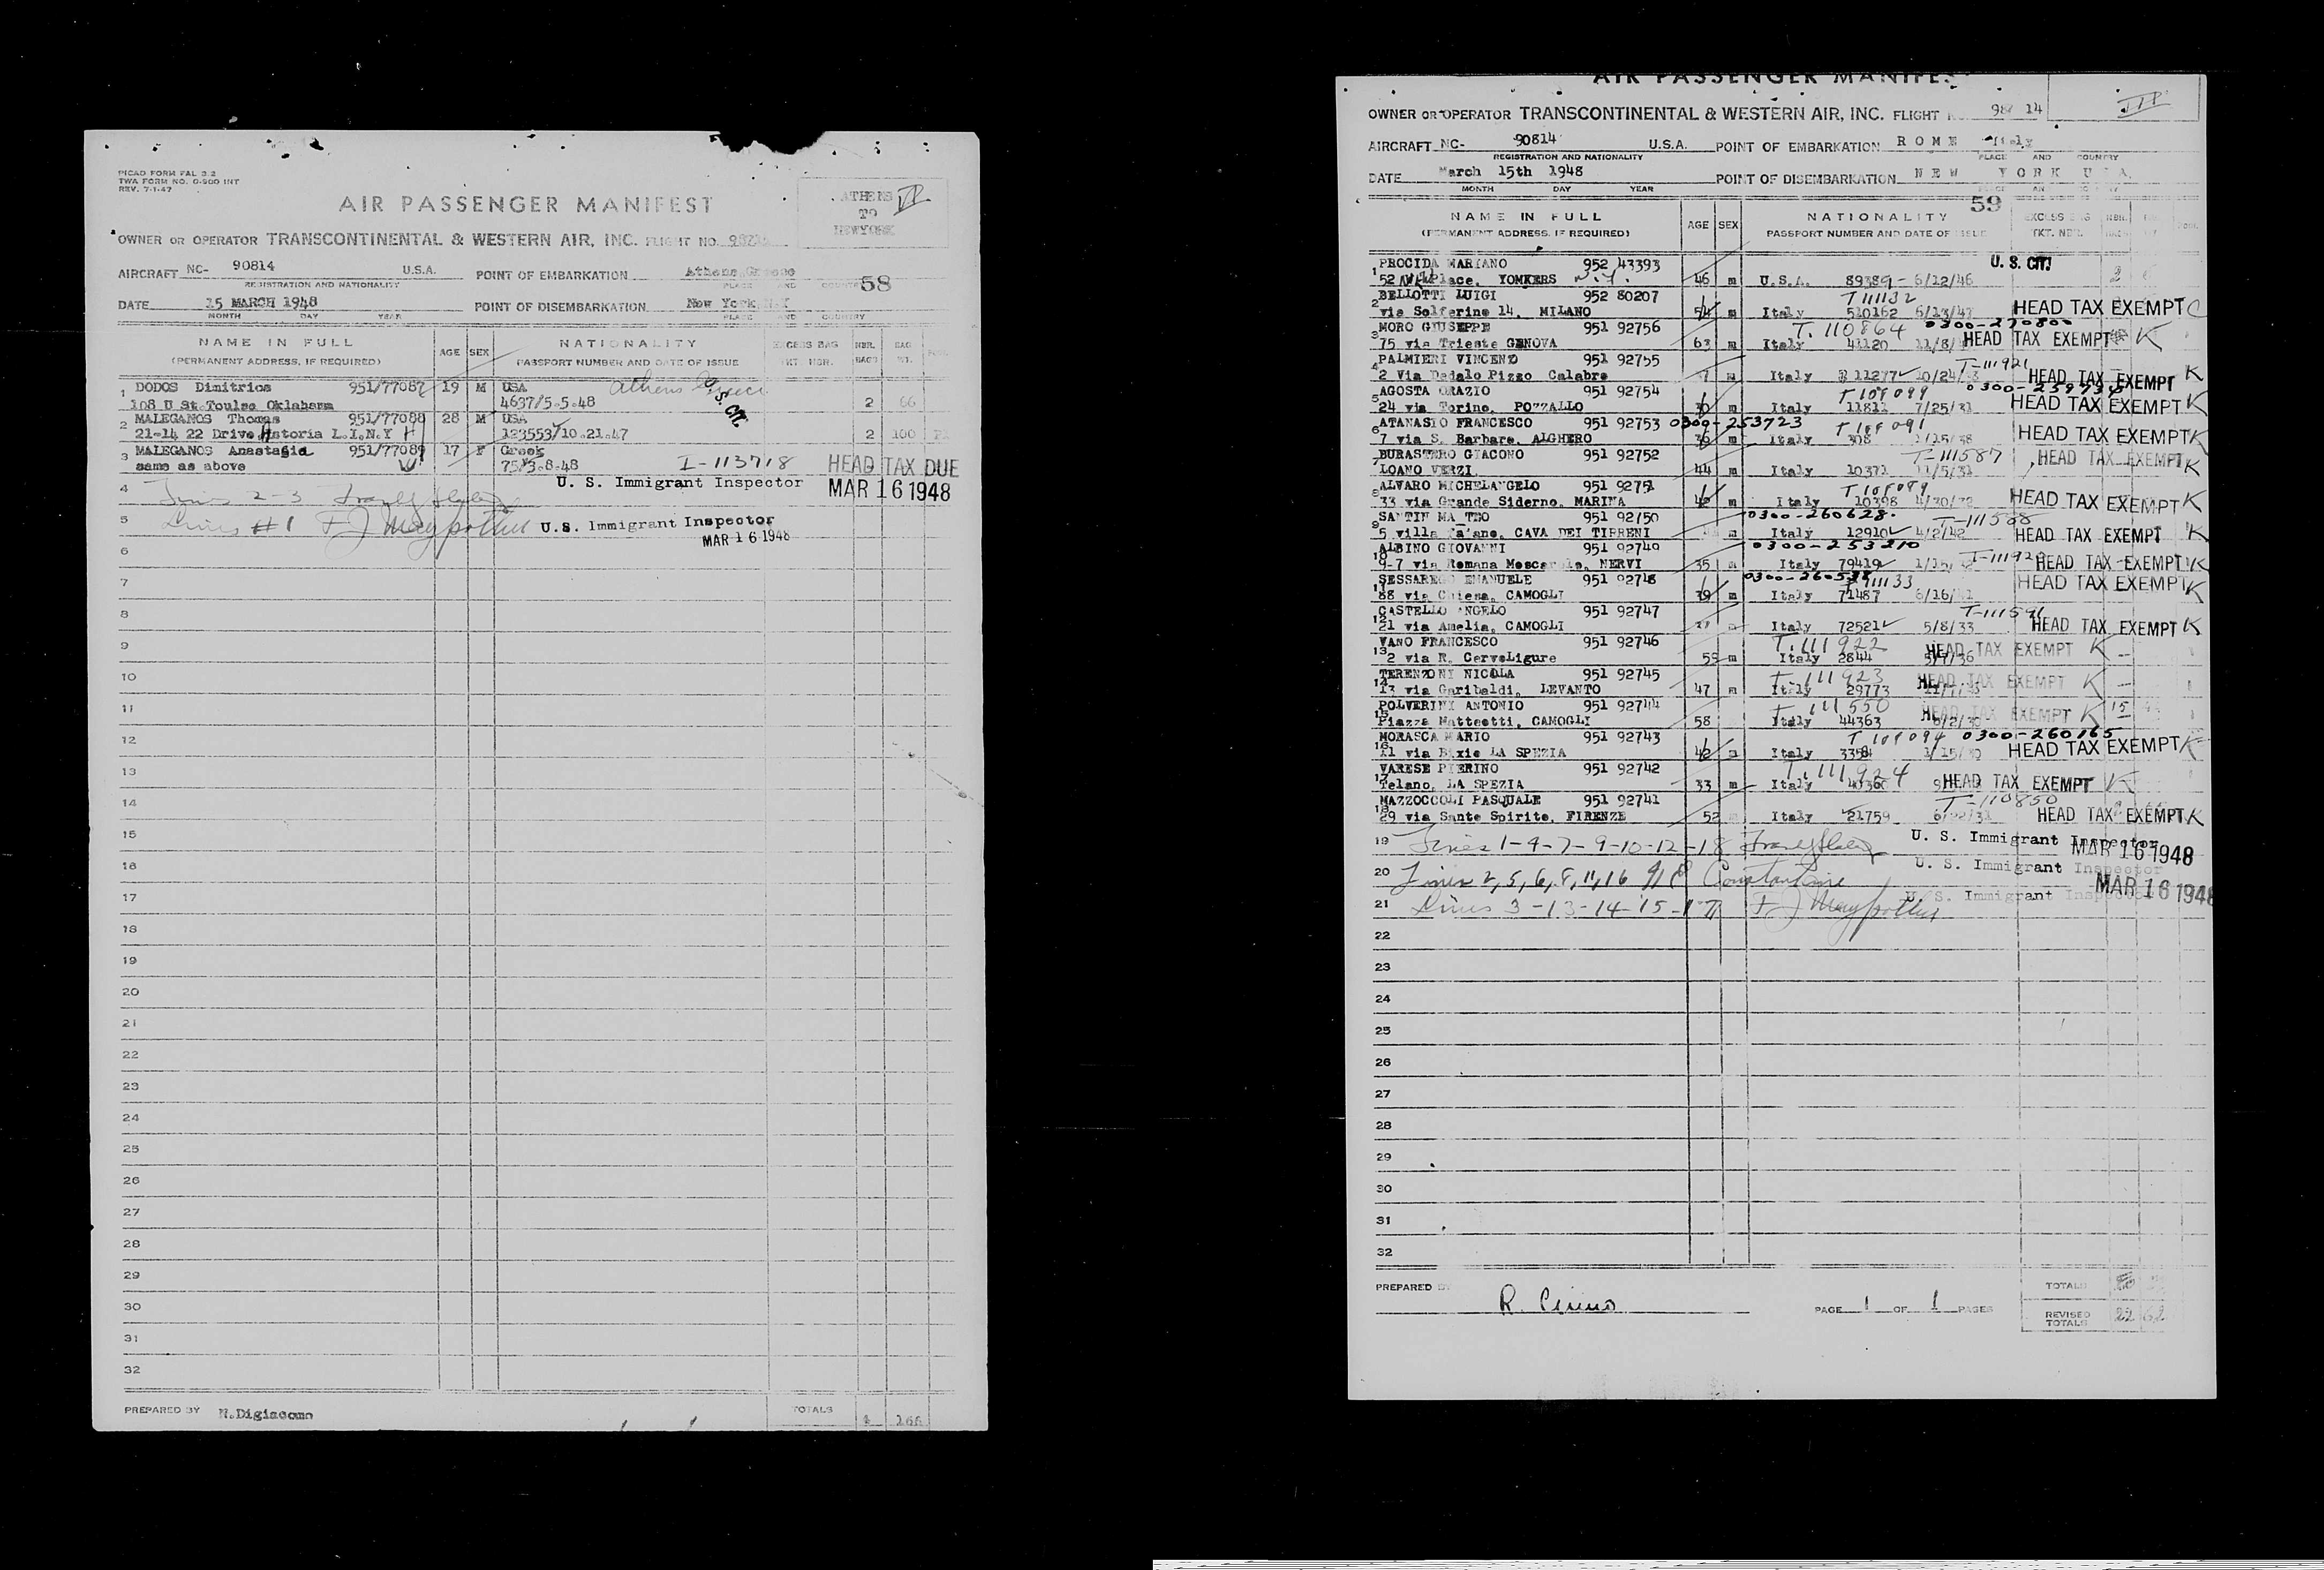 PICAO FORM FAL 3.2
TWA FORM NO. O-900 INT
REV. 7-1-47
AIR PASSENGER MANIFEST
ATHENS
TO
NEWYORK
OWNER OR OPERATOR TRANSCONTINENTAL & WESTERN AIR, INC. FLIGHT NO.
AIRCRAFT NC- 90814 U.S.A. POINT OF EMBARKATION Athens Greece
REGISTRATION AND NATIONALITY PLACE AND COUNTRY
58
DATE 15 MARCH 1948 POINT OF DISEMBARKATION New York N.Y
MONTH DAY YEAR PLACE AND COUNTRY
NAME IN FULL AGE SEX NATIONALITY EXCESS BAG NBR. BAG
(PERMANENT ADDRESS, IF REQUIRED) PASSPORT NUMBER AND DATE OF ISSUE TKT. NBR. BAGS WT.
1 DODOS Dimitrios 951/77087 19 M USA Athens Greece
108 U St.Toulse Oklahama 4637/5.5.48 2 66
2 MALEGANOS Thomas 951/77088 28 M USA
21-14 22 Drive Astoria L.I.N.Y 123553/10.21.47 2 100
3 MALEGANOS Anastasia 951/77089 17 F Greek
same as above 75/3.8.48 I-113718 HEAD TAX DUE
U. S. Immigrant Inspector MAR 16 1948
4 Lines 2-3
5 Lines #1 F J U.S. Immigrant Inspector
MAR 16 1948
6
7
8
9
10
11
12
13
14
15
16
17
18
19
20
21
22
23
24
25
26
27
28
29
30
31
32
PREPARED BY N.Digiacomo TOTALS 4 166
AIR PASSENGER MANIFES
OWNER OR OPERATOR TRANSCONTINENTAL & WESTERN AIR, INC. FLIGHT 14 III
AIRCRAFT NC- 90814 U.S.A. POINT OF EMBARKATION ROME Italy
REGISTRATION AND NATIONALITY PLACE AND COUNTRY
DATE March 15th 1948 POINT OF DISEMBARKATION NEW YORK U A.
MONTH DAY YEAR
59
NAME IN FULL AGE SEX NATIONALITY EXCESS BAG NBR.
(PERMANENT ADDRESS, IF REQUIRED) PASSPORT NUMBER AND DATE OF ISSUE TKT. NBR.
PROCIDA MARIANO 952 43393 U. S. CIT.
1 52 Place. YOMKERS N.Y. 46 m U.S.A. 89389 - 6/12/46 2
BELLOTTI LUIGI 952 80207 T 111132
2 via Solferino 14. MILANO 54 m Italy 510162 6/13/47 HEAD TAX EXEMPT C
MORO GIUSEPPE 951 92756 T. 110864 0300-270800
3 75 via Trieste GENOVA 63 m Italy 41120 11/8/ HEAD TAX EXEMPT K
PALMIERI VINCENZO 951 92755 T-111921
4 2 Via Dedalo Pizzo Calabro m Italy 11277 10/24/ HEAD TAX EXEMPT K
AGOSTA ORAZIO 951 92754 T 109099
5 24 via Torino. POZZALLO 30 m Italy 11811 7/25/31 HEAD TAX EXEMPT K
ATANASIO FRANCESCO 951 92753 0300-253723 T 109091
6 7 via S. Barbare. ALGHERO 36 m Italy 308 1/15/38 HEAD TAX EXEMPT K
BURASTERO GIACONO 951 92752 T-111587
7 LOANO VERZI. 44 m Italy 10371 11/5/31 HEAD TAX EXEMPT K
ALVARO MICHELANGELO 951 92751
8 33 via Grande Siderno. MARINA 42 m Italy 10398 4/30/32 HEAD TAX EXEMPT K
SANTIN MATTEO 951 92750 0300-260628. T-111588
9 5 villa CAVA DEI TIRRENI m Italy 12910 4/2/42 HEAD TAX EXEMPT K
ALBINO GIOVANNI 951 92749 0300-253210
10 9-7 via Romana NERVI 35 m Italy 79419 HEAD TAX EXEMPT K
SESSAREGO EMANUELE 951 92748 111133
11 88 via Chiesa. CAMOGLI 39 m Italy 71487 6/16/ HEAD TAX EXEMPT K
CASTELLO ANGELO 951 92747 T-111591
12 21 via Amelia. CAMOGLI Italy 72521 5/8/33 HEAD TAX EXEMPT K
VANO FRANCESCO 951 92746 T. 111922
13 2 via R. CervoLigure 55 m Italy 2844 HEAD TAX EXEMPT K
TERENZONI NICOLA 951 92745 T-111923
14 13 via Garibaldi. LEVANTO 47 m Italy 29773 HEAD TAX EXEMPT K
POLVERINI ANTONIO 951 92744 T-111550
15 Piazza Matteotti. CAMOGLI 58 Italy 44363 HEAD TAX EXEMPT K
MORASCA MARIO 951 92743 T 109094 0300-260165
16 21 via Bixio LA SPEZIA 42 m Italy 3358 HEAD TAX EXEMPT K
VARESE PIERINO 951 92742 T. 111924
17 Telano. LA SPEZIA 33 m Italy HEAD TAX EXEMPT K
MAZZOCCOLI PASQUALE 951 92741 T-110850
18 29 via Santo Spirito. FIRENZE 52 Italy 21759 HEAD TAX EXEMPT K
19 Lines 1-4-7-9-10-12-18 U. S. Immigrant Inspector
MAR 16 1948
20 Lines 2, 5, 6, 8, 11, 16 Constantine U. S. Immigrant Inspector
MAR 16 1948
21 Lines 3-13-14-15-17 F J U. S. Immigrant Inspector
22
23
24
25
26
27
28
29
30
31
32
PREPARED R. Cirino PAGE 1 OF 1 PAGES TOTALS
REVISED TOTALS 22